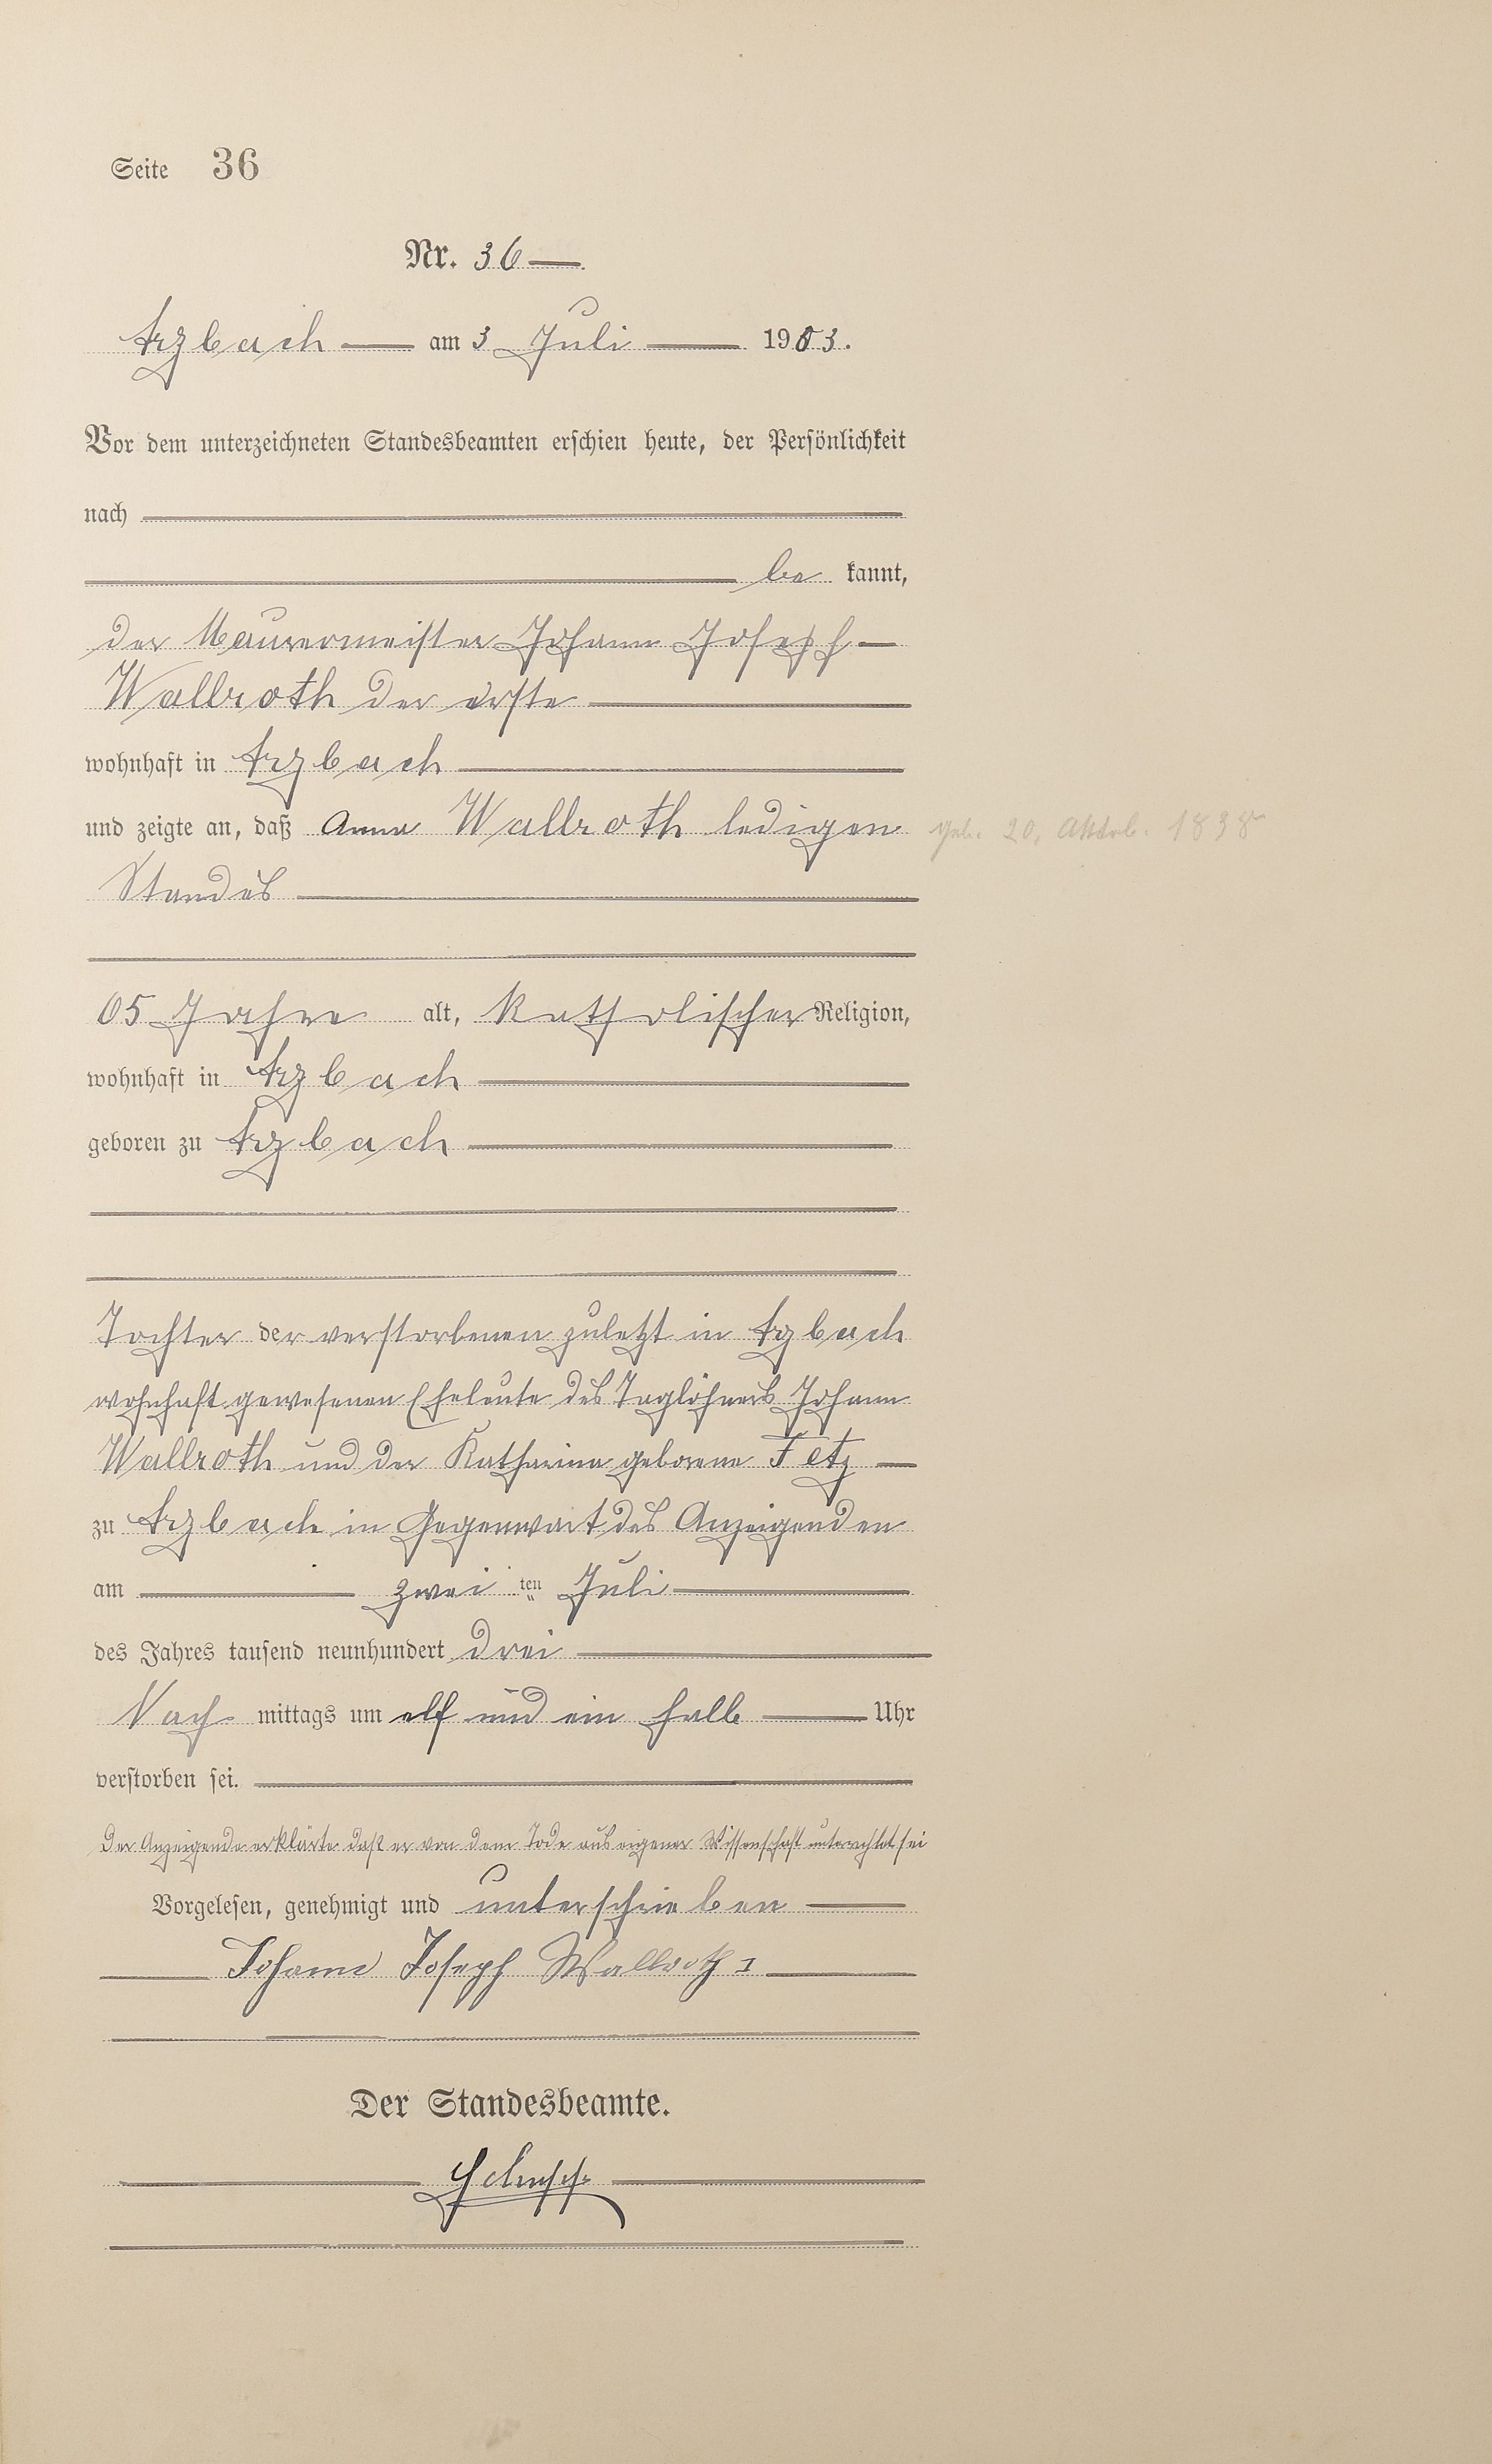 Seite 36
Nr. 36
Arzbach am 3 Juli 1903.
Vor dem unterzeichneten Standesbeamten erschien heute, der Persönlichkeit
nach
be kannt,
der Maurermeister Johann Joseph
Wallroth der erste
wohnhaft in Arzbach
und zeigte an, daß Anna Wallroth ledigen
geb. 20. Oktob. 1838
Standes
65 Jahre alt, katholischer Religion,
wohnhaft in Arzbach
geboren zu Arzbach
Tochter der verstorbenen zuletzt in Arzbach
wohnhaft gewesenen Eheleute des Taglöhners Johann
Wallroth und der Katharina geborene Fetz
zu Arzbach in Gegenwart des Anzeigenden
am zwei ten Juli
des Jahres tausend neunhundert drei
Nach mittags um elf und ein halb Uhr
verstorben sei.
Der Anzeigende erklärte daß er von dem Tode aus eigener Wissenschaft unterrichtet sei
Vorgelesen, genehmigt und unterschrieben
Johann Joseph Wallroth I
Der Standesbeamte.